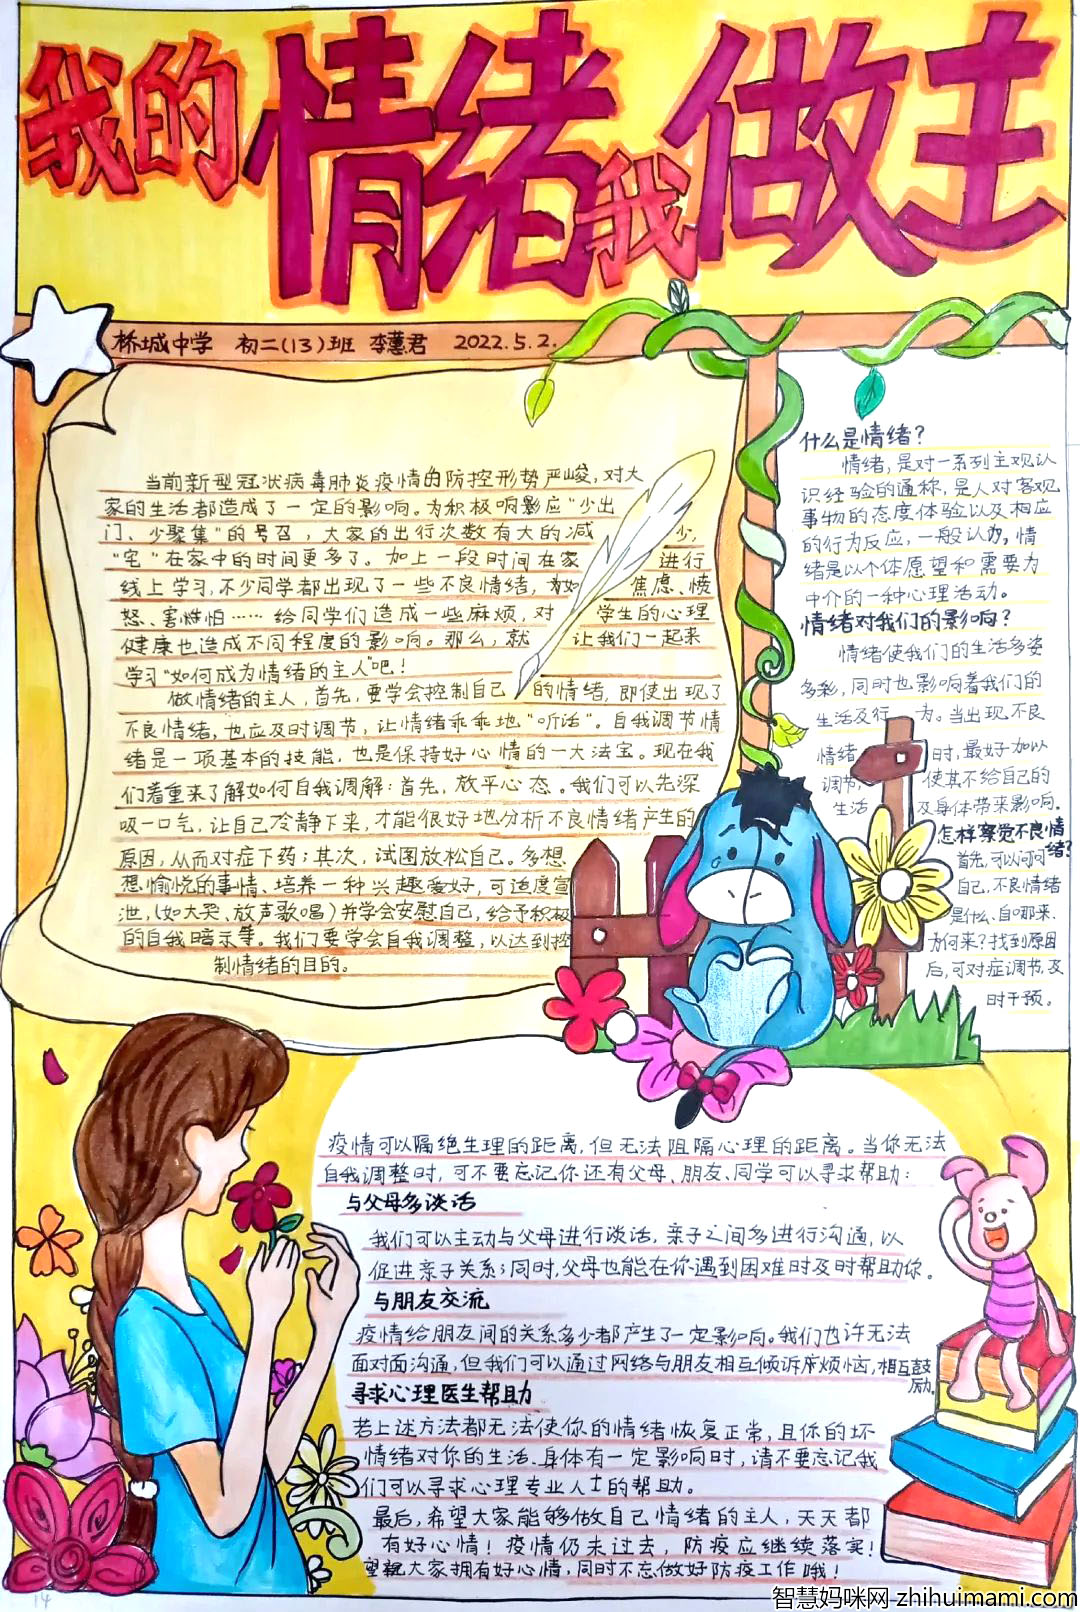 我的情绪我做主
桥城中学 初二(13)班 李蕙君 2022.5.2.
当前新型冠状病毒肺炎疫情的防控形势严峻,对大
家的生活都造成了一定的影响。为积极响影应“少出
门、少聚集”的号召,大家的出行次数有大的减少,
“宅”在家中的时间更多了。加上一段时间在家进行
线上学习,不少同学都出现了一些不良情绪,如焦虑、愤
怒、害怕……给同学们造成一些麻烦,对学生的心理
健康也造成不同程度的影响。那么,就让我们一起来
学习“如何成为情绪的主人”吧!
做情绪的主人,首先,要学会控制自己的情绪,即使出现了
不良情绪,也应及时调节,让情绪乖乖地“听话”。自我调节情
绪是一项基本的技能,也是保持好心情的一大法宝。现在我
们着重来了解如何自我调解:首先,放平心态。我们可以先深
吸一口气,让自己冷静下来,才能很好地分析不良情绪产生的
原因,从而对症下药;其次,试图放松自己。多想
想愉悦的事情、培养一种兴趣爱好,可适度宣
泄,(如大哭、放声歌唱)并学会安慰自己,给予积极
的自我暗示等。我们要学会自我调整,以达到控
制情绪的目的。
什么是情绪?
情绪,是对一系列主观认
识经验的通称,是人对客观
事物的态度体验以及相应
的行为反应,一般认为,情
绪是以个体愿望和需要为
中介的一种心理活动。
情绪对我们的影响?
情绪使我们的生活多姿
多彩,同时也影响着我们的
生活及行为。当出现不良
情绪时,最好加以
调节,使其不给自己的
生活及身体带来影响。
怎样察觉不良情绪?
首先,可以问问
自己,不良情绪
是什么、自哪来、
为何来?找到原因
后,可对症调节,及
时干预。
疫情可以隔绝生理的距离,但无法阻隔心理的距离。当你无法
自我调整时,可不要忘记你还有父母、朋友、同学可以寻求帮助:
与父母多谈话
我们可以主动与父母进行谈话,亲子之间多进行沟通,以
促进亲子关系;同时,父母也能在你遇到困难时及时帮助你。
与朋友交流
疫情给朋友间的关系多少都产生了一定影响。我们也许无法
面对面沟通,但我们可以通过网络与朋友相互倾诉烦恼,相互鼓
励。
寻求心理医生帮助
若上述方法都无法使你的情绪恢复正常,且你的坏
情绪对你的生活、身体有一定影响时,请不要忘记我
们可以寻求心理专业人士的帮助。
最后,希望大家能够做自己情绪的主人,天天都
有好心情!疫情仍未过去,防疫应继续落实!
望祝大家拥有好心情,同时不忘做好防疫工作哦!
14
智慧妈咪网 zhihuimami.com